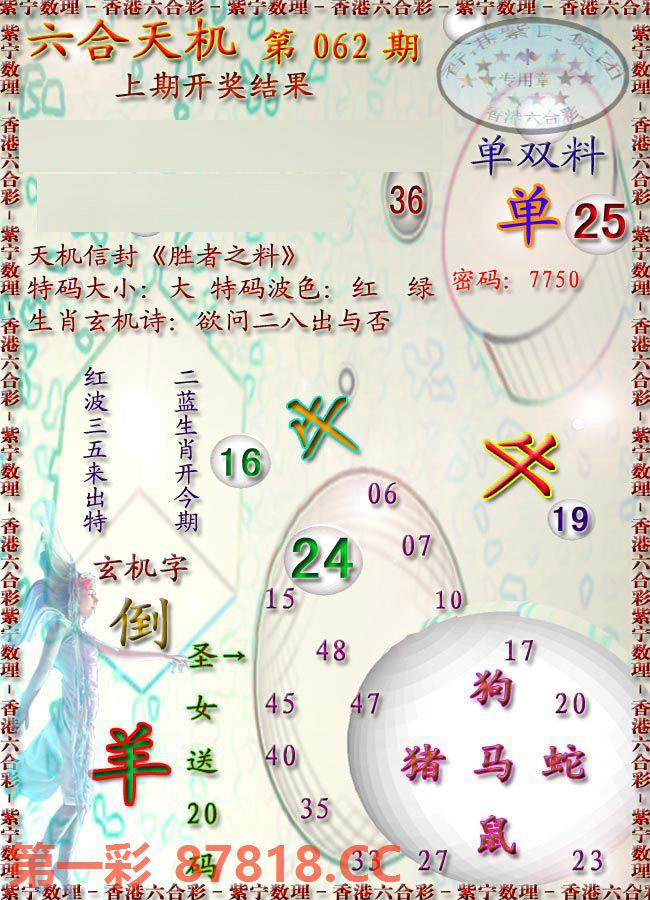 紫宁数理－香港六合彩－紫宁数理－香港六合彩－紫宁数理－香港六合彩－紫宁数理
六合天机 第 062 期
上期开奖结果
香港紫宁集团
专用章
香港六合彩
单双料
单 25
36
天机信封《胜者之料》
特码大小：大 特码波色：红 绿
密码：7750
生肖玄机诗：欲问二八出与否
二蓝生肖开今期
红波三五来出特
16
19
玄机字
倒
羊
圣→
女
送
20
码
06
24
07
15
10
48
17
狗
45
47
20
40
猪 马 蛇
35
鼠
33
27
23
第一彩 87818.CC
紫宁数理－香港六合彩－紫宁数理－香港六合彩－紫宁数理－香港六合彩－紫宁数理